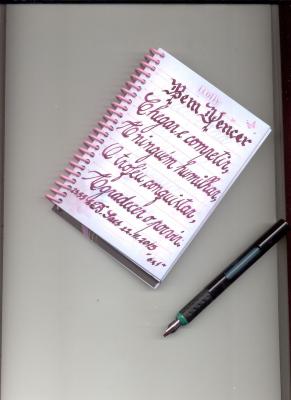 Bem Vencer
Chegar e competir,
A ninguém humilhar,
O troféu conquistar,
Agradecer o porvir.